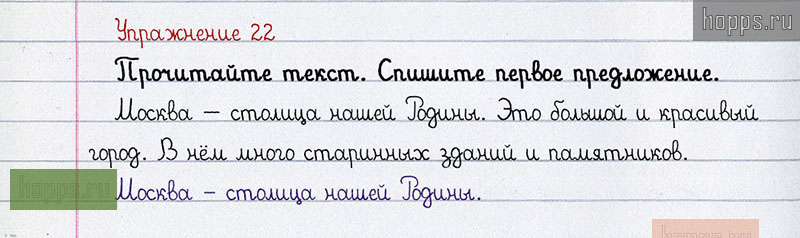 hopps.ru
Упражнение 22
Прочитайте текст. Спишите первое предложение.
Москва – столица нашей Родины. Это большой и красивый
город. В нём много старинных зданий и памятников.
hopps.ru
Москва – столица нашей Родины.
hopps.ru